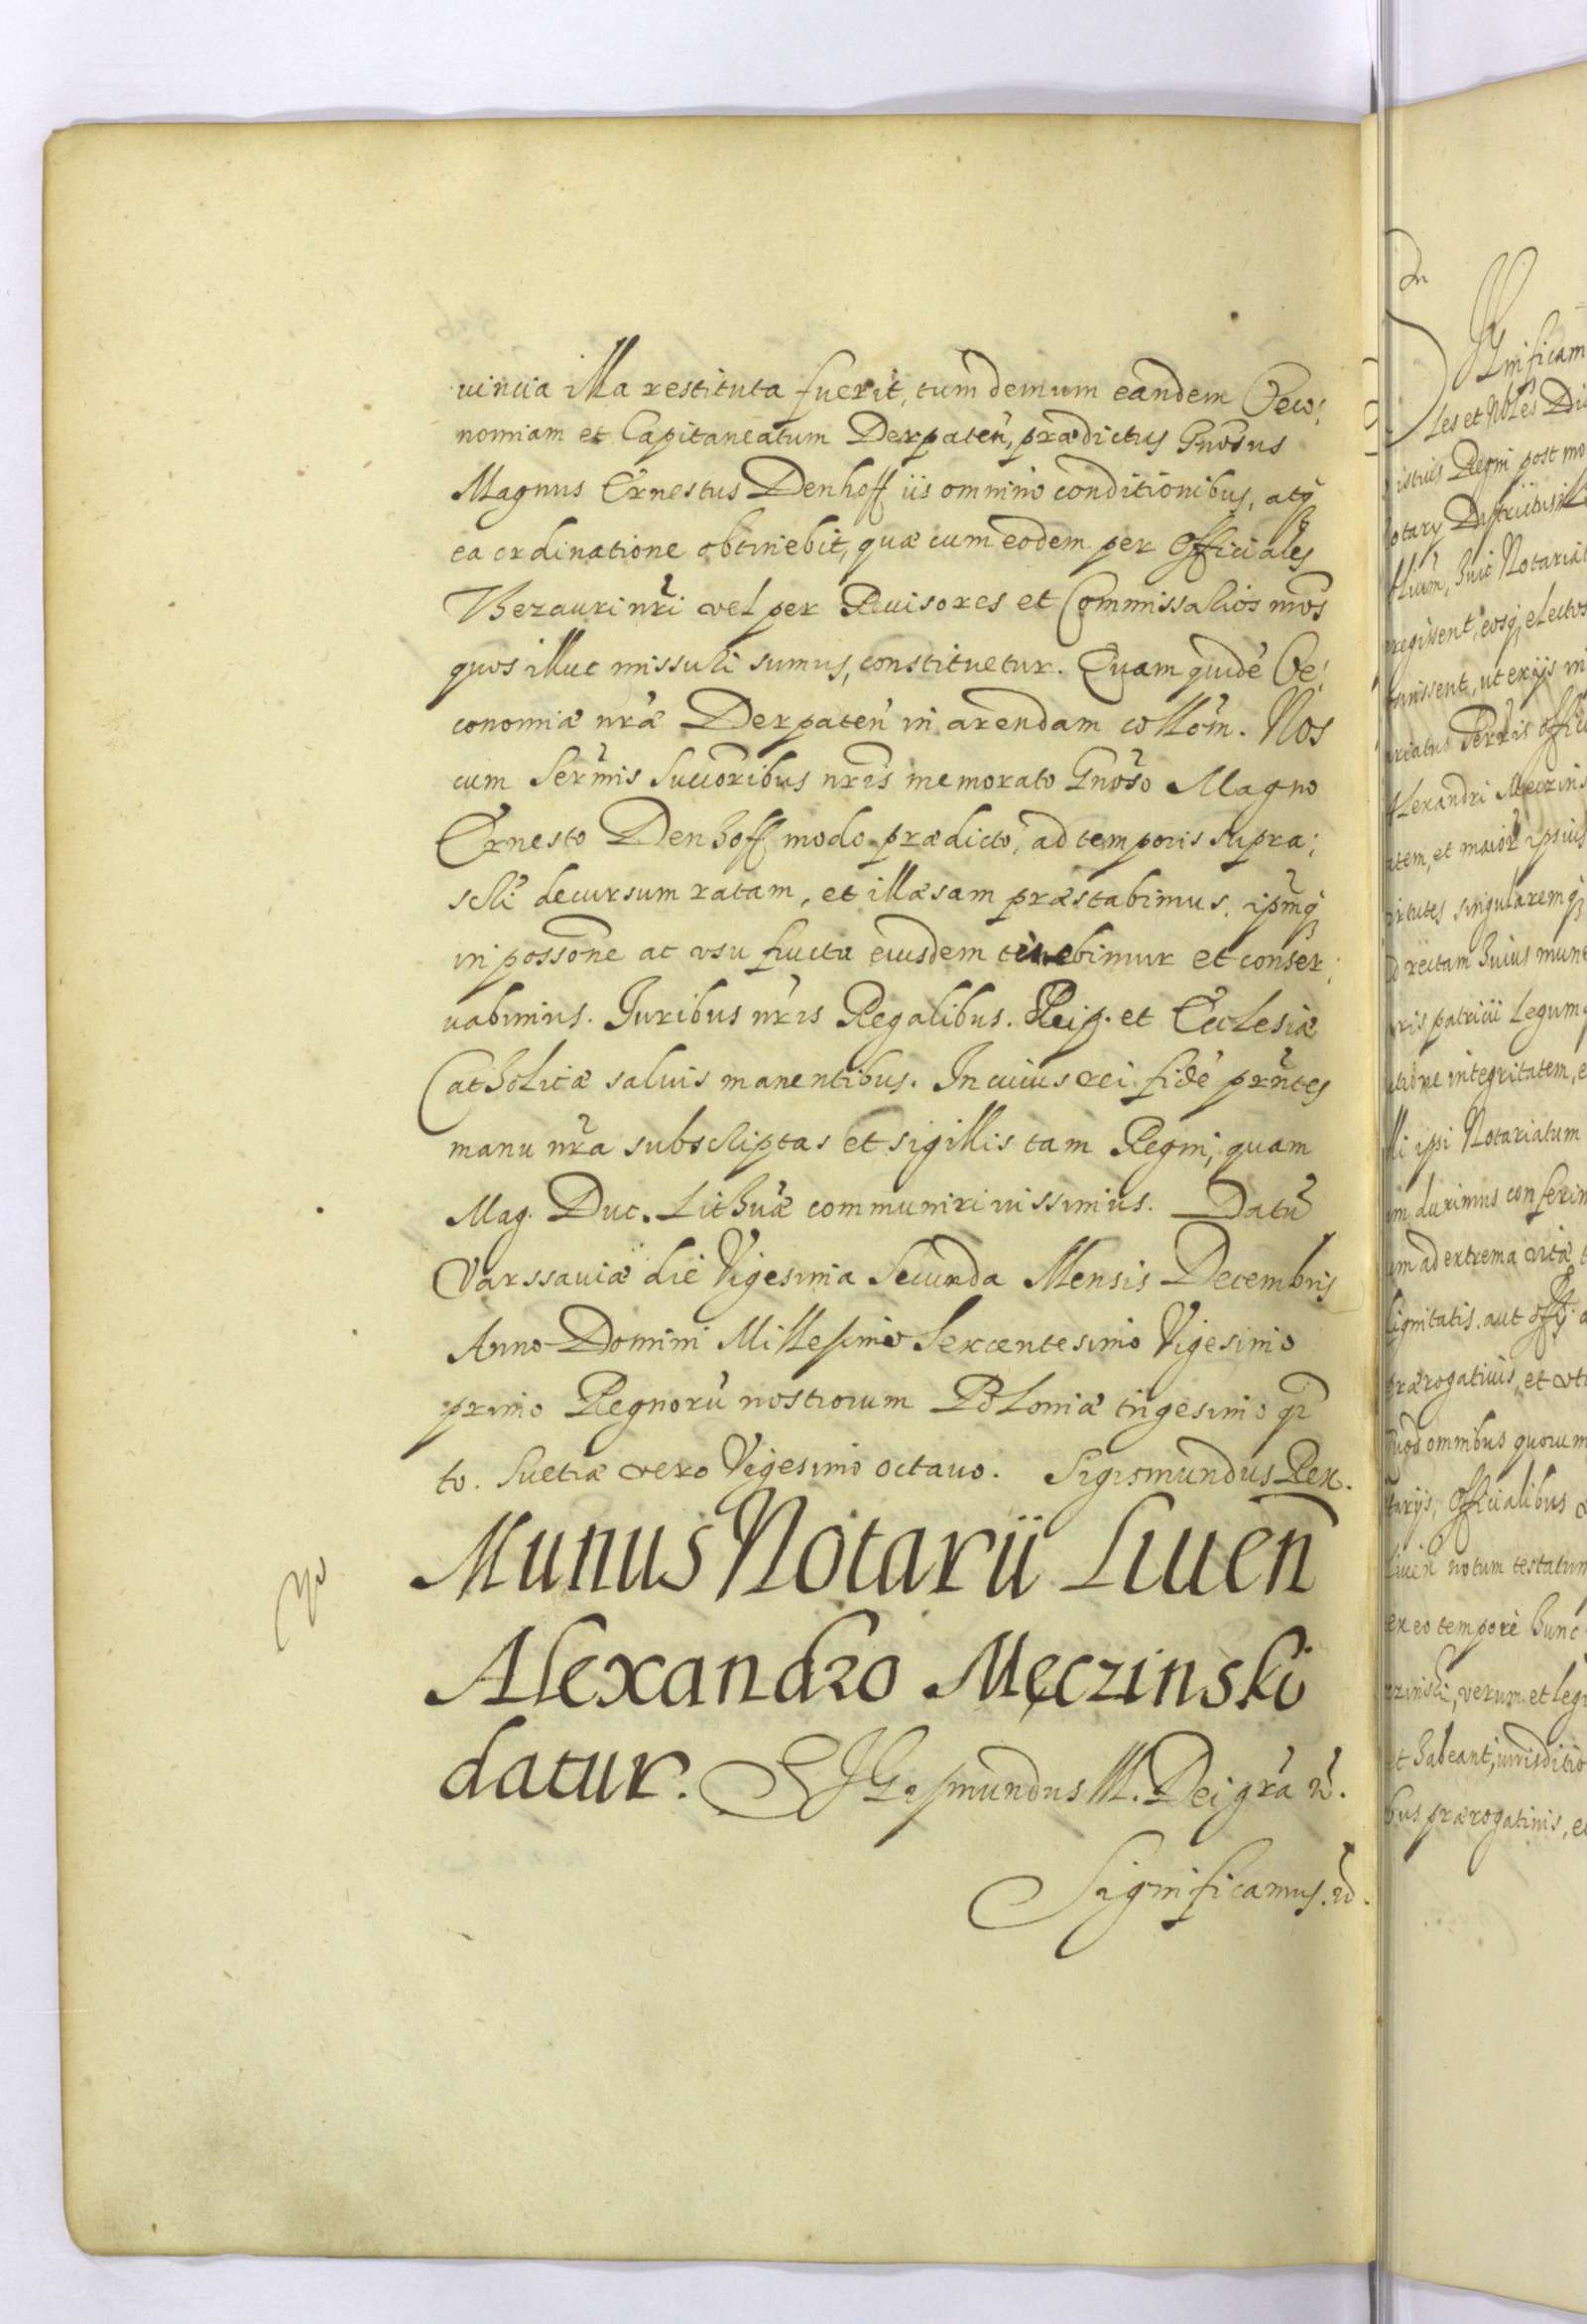 vincia illa restituta fuerit, tum demum eandem Oeco:
nomiam et Capitaneatum Derpateñ, prædictus Gnosus
Magnus Ernestus Denhoff iis omnino conditionibus, atq
ea ordinatione obtinebit, quæ cum eodem per Officiales
Thezauri nri vel per Reuisores et Commissarios nros
quos illuc missuri sumus, constituetur. Quam quidé Oe:
conomiæ nræ Derpateñ in arendam collom. Nos
cum Sermis Succoribus nris memorato Gnoso Magno
Ernesto Denhoff modo prædicto, ad temporis supra:
scri decursum ratam, et illæsam præstabimus, ipmq
in possone ac vsu fructu eiusdem tuebimur et conser:
uabimus. Juribus nris Regalibus. Reip. et Ecclesiæ
Catholicæ saluis manentibus. In cuius rei fidé prntes
manu nra subscriptas et sigillis tam Regni, quam
Mag. Duc. Lithuæ communiri iussimus. Datū
Varssauiæ die Vigesima Secunda Mensis Decembris
Anno Domini Millesimo Sexcentesimo Vigesimo
primo Regnorū nostrorum Poloniæ trigesimo qi̅
to. Suetiæ vero Vigesimo octauo. Sigismundus Rex.
Munus Notarii Liuen̄
Alexandro Męczinski
datur. SIGismundus III. Dei gra
Significamus
Significam
les et Nobles
istius Regni post
Notariat
electos
vt ex ijs in
Alexandri Męczins
et maiorū ipsius
singularemq
rectam huius mune
ris patrii Legumq
integritatem, e
li ipsi Notariatum
duximus conferim
ad extrema vitæ
dignitatis, aut offi
prærogatiuis, et
omnibus quorum
Officialibus
notum testatum
ex eo tempore hunc
verum et legi
et habeant, iurisditio
bus prærogatiuis, e